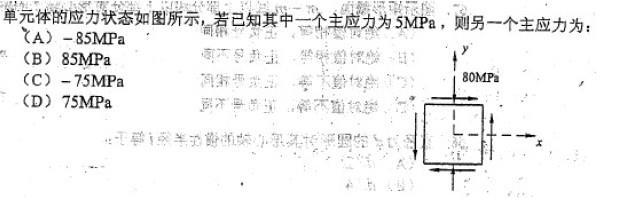 单元体的应力状态如图所示，若已知其中一个主应力为5MPa，则另一个主应力为：
（A）－85MPa
（B）85MPa
（C）－75MPa
（D）75MPa
y
80MPa
x